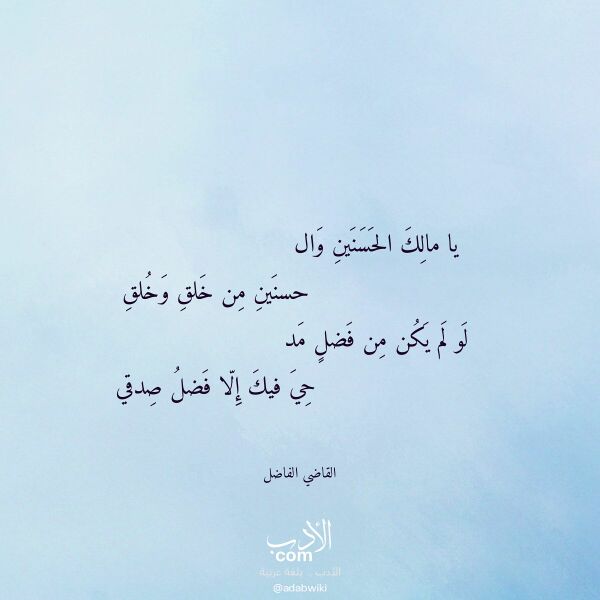 يا مالِكَ الحَسَنَينِ وَال
حسنَينِ مِن خَلقِ وَخُلقِ
لَو لَم يَكُن مِن فَضلٍ مَد
حِيَ فيكَ إِلّا فَضلُ صِدقي
القاضي الفاضل
الأدب
com
الأدب .. بلغة عربية
@adabwiki